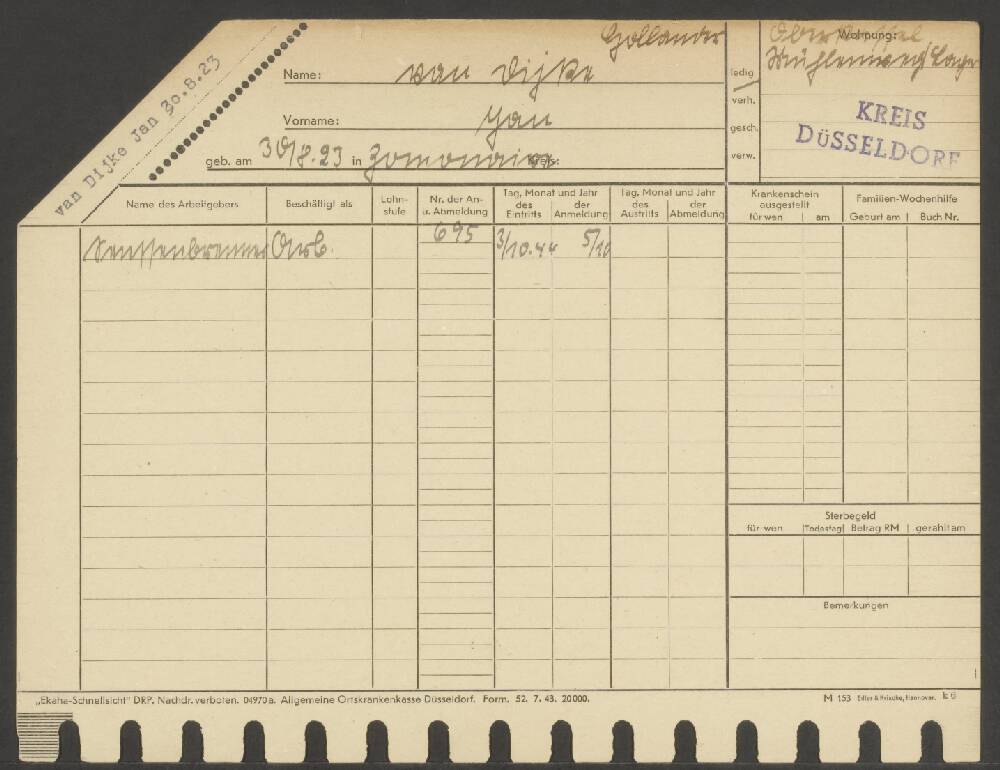 van Dijke Jan 30.8.23
Holländer
Name: van Dijke
Vorname: Jan
geb. am 30/8.23 in Kreis:
ledig
verh.
gesch.
verw.
Wohnung:
Oberkassel
Mühlenweg Lager
KREIS
DÜSSELDORF
Name des Arbeitgebers
Beschäftigt als
Lohn-
stufe
Nr. der An-
u. Abmeldung
Tag, Monat und Jahr
des Eintritts
der Anmeldung
Tag, Monat und Jahr
des Austritts
der Abmeldung
Krankenschein
ausgestellt
für wen am
Familien-Wochenhilfe
Geburt am Buch Nr.
Arb. 695 3/10.44 5/10
Sterbegeld
für wen Todestag Betrag RM gezahlt am
Bemerkungen
„Ekaha-Schnellsicht" DRP. Nachdr. verboten. 04970a. Allgemeine Ortskrankenkasse Düsseldorf. Form. 52. 7. 43. 20000.
M 153 Edler & Krische, Hannover. k 6